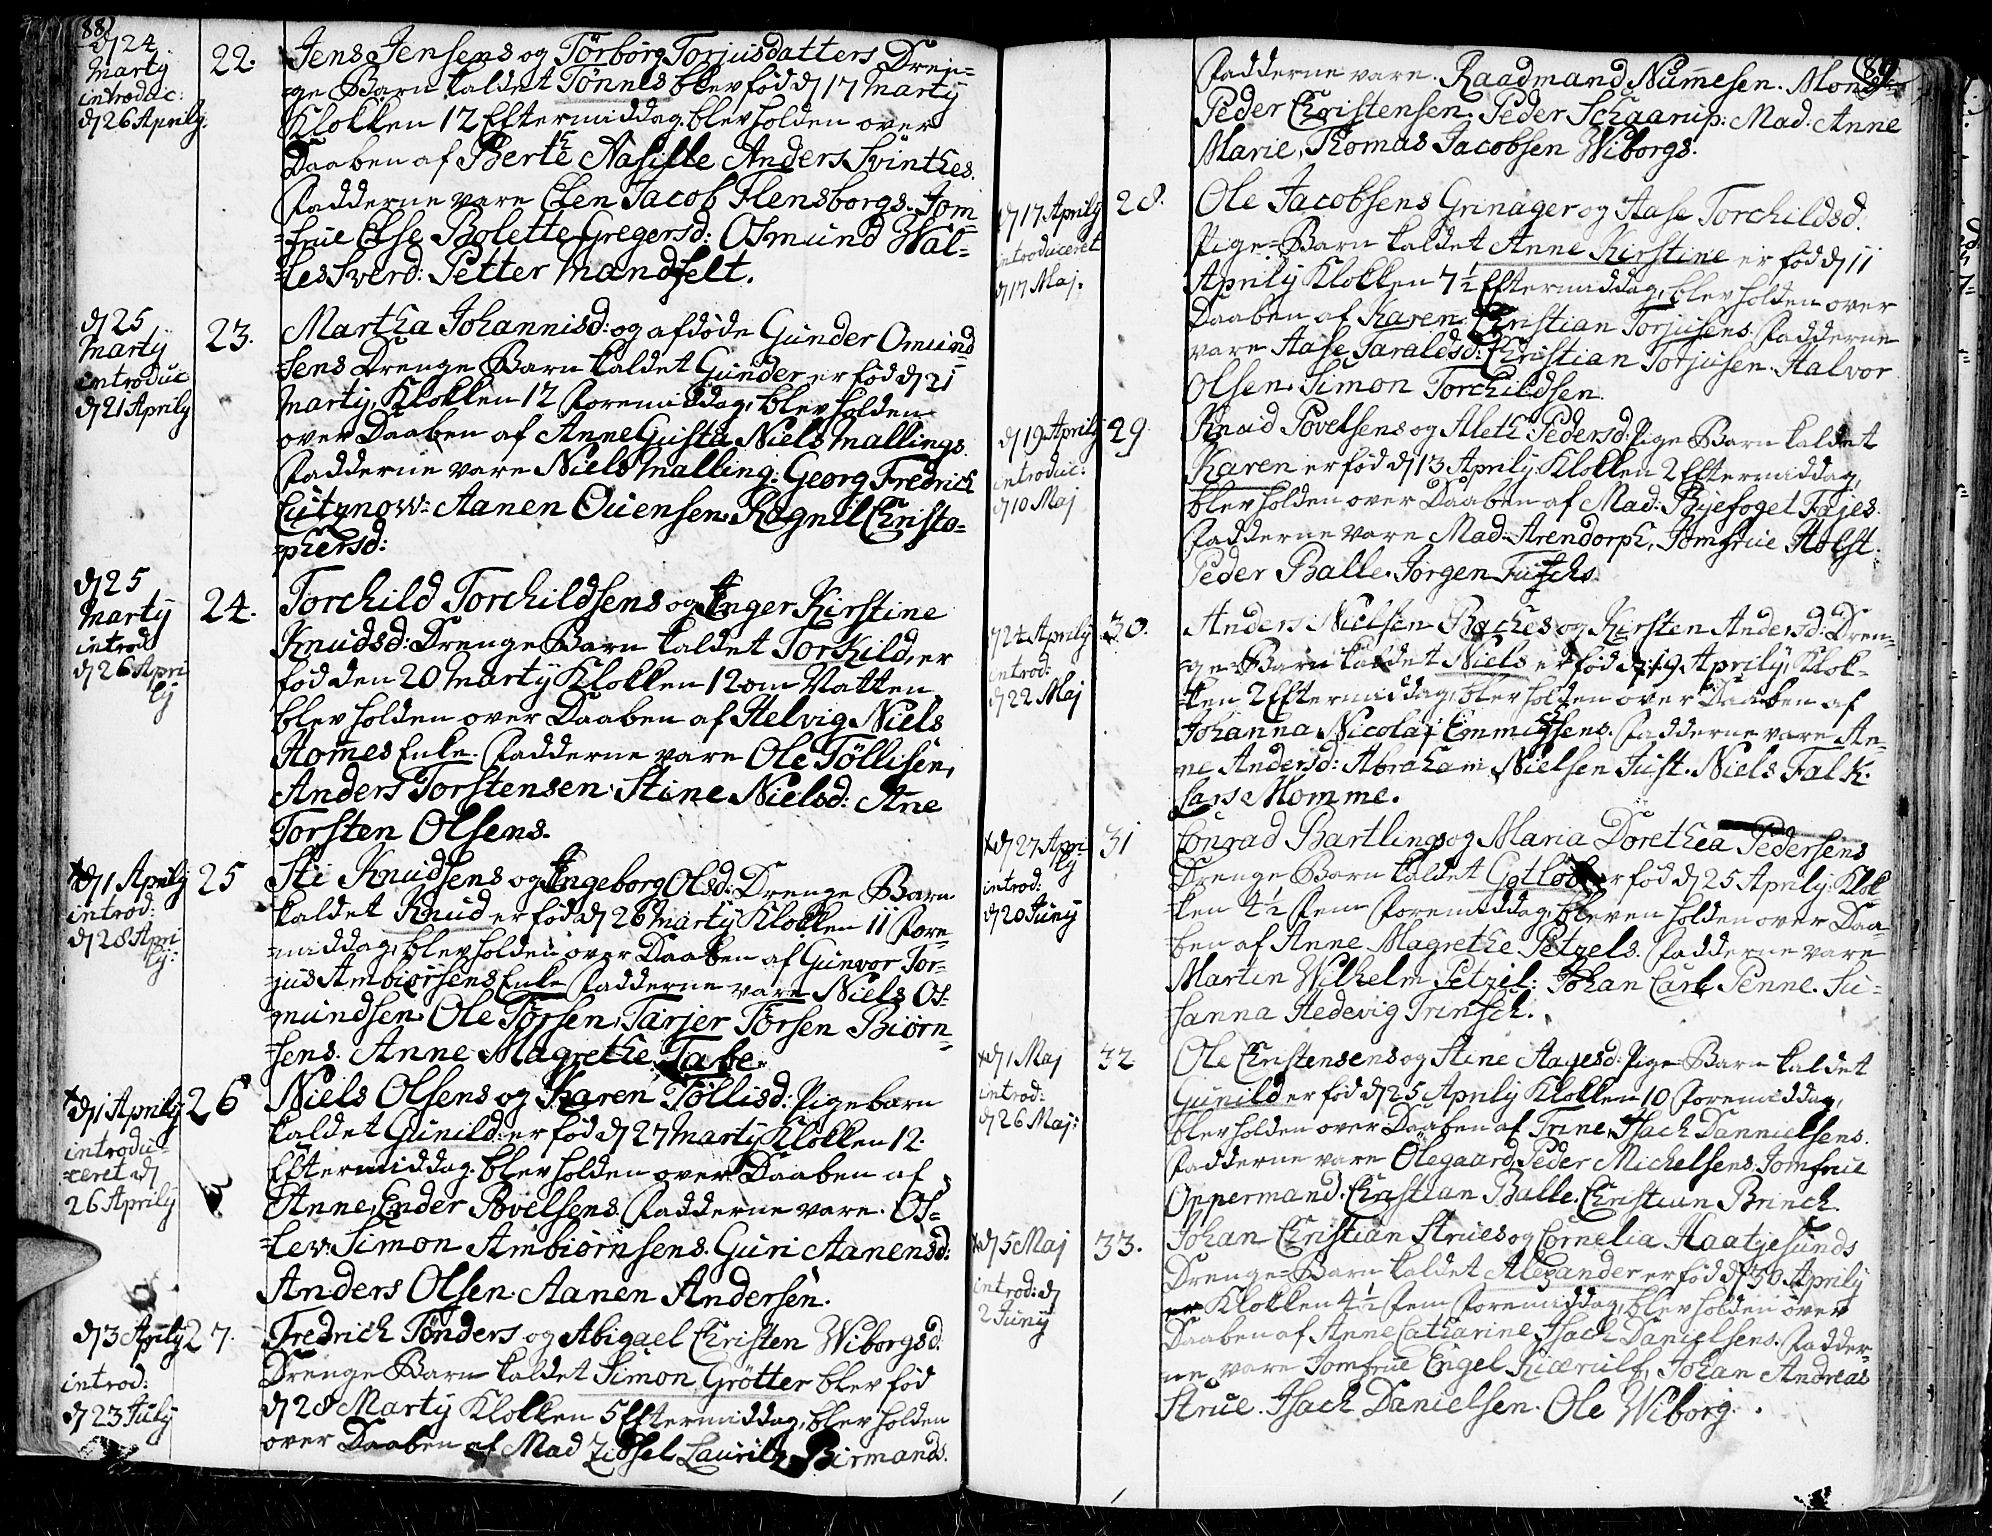 88
d 24
Marty
introduc:
d 26 Aprily.
22.
Jens Jensens og Törborg Torjusdatters Dren=
=ge Barn kaldet Tönnes blev föd d 17 Marty
Klokken 12 Eftermiddag, blev holden over
Daaben af Berte Anders Svinthes.
Fadderne vare Elen Jacob Flensborgs. Jom=
=frue Else Bolette Gregersd: Osmund Wal=
=les Sverd: Petter Mandfelt.
d 25
Marty
introduc
d 21 Aprily
23.
Martha Johannisd: og afdöde Gunder Omund
=sens Drenge Barn kaldet Gunder er föd d 21
Marty, Klokken 12 Formiddag, blev holden
over Daaben af Anne Gusta Niels Mallings.
Fadderne vare Niels Malling: Georg Fredrich
Lutznow: Aanen Ouensen. Rognil Christo=
=phersd:
d 25
Marty
introd
d 26 Apri
ly
24.
Torchild Torchildsens og Inger Kirstine
Knudsd: Drenge Barn kaldet Torkild, er
föd den 20 Marty Klokken 12 om Natten,
blev holden over Daaben af Helvig Niels
Hommes Enke. Fadderne vare Ole Töllisen,
Anders Torstensen. Stine Nielsd: Ane
Torsten Olsens.
d 1 Aprily
introd:
d 28 Apri
ly:
25
Sti Knudsens og Ingeborg Olsd: Drenge Barn
kaldet Knud er föd d 26 Marty Klokken 11 Fore=
=middag, blev holden over Daaben af Gunvor Tor=
=jus Ambiörsens Enke Fadderne vare Niels Os=
=mundsen. Ole Törsen, Tarjer Törsen Biörn=
=sens. Anne Magrethe Tabe.
d 1 Aprily
introdu=
=ceret d
26 Aprily
26
Niels Olsens og Karen Töllisd: Pigebarn
kaldet Gunild: er föd d 27 Marty Klokken 12.
Eftermiddag. blev holden over Daaben af
Anne, Ender Povelsens. Fadderne vare. Os=
=lev. Simon Ambiörnsens. Guri Aanensd:
Anders Olsen. Aanen Andersen.
d 3 Aprily
introd:
d 23 July
27.
Fredrich Tönders og Abigael Christen Wiborgsd.
Drenge Barn kaldet Simon Grötter blev föd
d 28 Marty Klokken 5 Eftermiddag, blev holden
over Daaben af Mad Zidsel Lauritz Birmands.
89
Fadderne vare. Raadmand Nummesen. Mons:
Peder Christensen. Peder Schaarup: Mad: Anne
Marie, Thomas Jacobsen Wiborgs.
d 17 Aprily
introduceret
d 17 Maj.
28.
Ole Jacobsens Grinager og Aase Torchildsd.
Pige=Barn kaldet Anne Kirstine er föd d 11
Aprily Klokken 7 1/2 Eftermiddag, blev holden over
Daaben af Karen Christian Torjusens. Fadderne
vare Aase Taraldsd: Christian Torjusen. Halvor
Olsen. Simon Torchildsen.
d 19 Aprily
introduc:
d 10 Maj
29.
Knud Povelsens og Aleth Pedersd: Pige Barn kaldet
Karen er föd d 13 Aprily Klokken 2 Eftermiddag,
blev holden over Daaben af Mad: Byefoget Fajes.
Fadderne vare Mad: Arendorph, Jomfrue Holst.
Peder Balle. Jörgen Fuschs.
d 24 Aprily
introd:
d 22 Maj
30.
Anders Nielsen Baches og Kirsten Andersd: Dren=
=ge Barn kaldet Niels er föd d 19 Aprily, Klok=
=ken 2 Eftermiddag, blev holden over Daaben af
Johanna Nicolaj Emmichsens. Fadderne vare An=
=ne Andersd: Abraham Nielsen Just. Niels Falk.
Lars Momme.
d 27 Apri
ly
introd:
d 20 Juny
31
Conrad Bartlings og Maria Dorethea Pedersens
Drenge Barn kaldet Gotlob er föd d 25 Aprily. Klok=
=ken 4 1/2 Fem Foremiddag, bleven holden over Daa=
=ben af Anne Magrethe Petzels. Fadderne vare
Martin Wilhelm Petzil: Johan Carl Penne. Su=
=sanna Hedevig Trinsch.
d 1 Maj
introd:
d 26 Maj:
32
Ole Christensens og Stine Aagesd: Pige Barn kaldet
Gunild er föd d 25 Aprily Klokken 10 Foremiddag,
blev holden over Daaben af Trine, Isach Dannielsens.
Fadderne vare Olegaard, Peder Michelsens. Jomfrue
Oppermand. Christian Balle. Christian Brinch.
d 5 Maj
introd: d
2 Juny
33.
Johan Christian Strues og Cornelia Haatjesunds
Drenge=Barn kaldet Alexander er föd d 30 Aprily
er Klokken 4 1/2 Fem Foremiddag, blev holden over
Daaben af Anne Catharine, Isach Danielsens. Fadder=
=ne vare Jomfrue Engel Kiærulf, Johan Andreas
Strue. Isach Danielsen. Ole Wiborg.